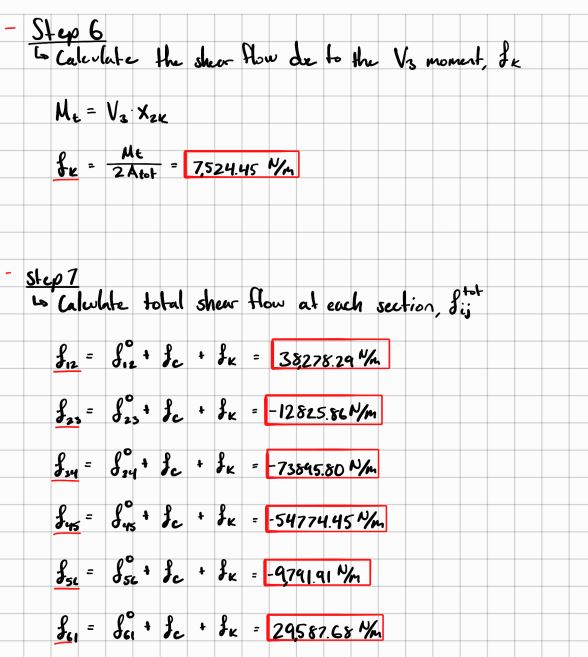 - Step 6
↳ Calculate the shear flow due to the V₃ moment, f_K
M_t = V₃ · X_2K
f_K = M_t / 2 A_tot = 7,524.45 N/m
- Step 7
↳ Calculate total shear flow at each section, f_ij^tot
f_12 = f_12^0 + f_c + f_K = 38,278.29 N/m
f_23 = f_23^0 + f_c + f_K = -12825.86 N/m
f_34 = f_34^0 + f_c + f_K = -73895.80 N/m
f_45 = f_45^0 + f_c + f_K = -54774.45 N/m
f_56 = f_56^0 + f_c + f_K = -9,791.91 N/m
f_61 = f_61^0 + f_c + f_K = 29,587.68 N/m